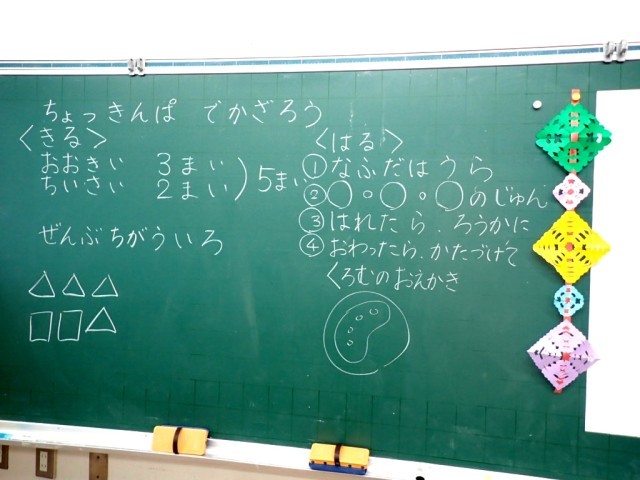 ちょっきんぱ でかざろう
<きる>
おおきい 3まい
ちいさい 2まい
)5まい
ぜんぶちがういろ
<はる>
①なふだはうら
②◯。◯。◯のじゅん
③はれたら、ろうかに
④おわったら、かたづけて
くろむのおえかき